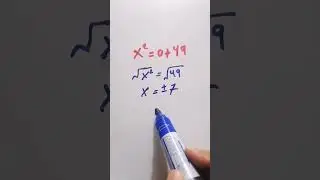 x² = 0 + 49
√x² = √49
x = ±7